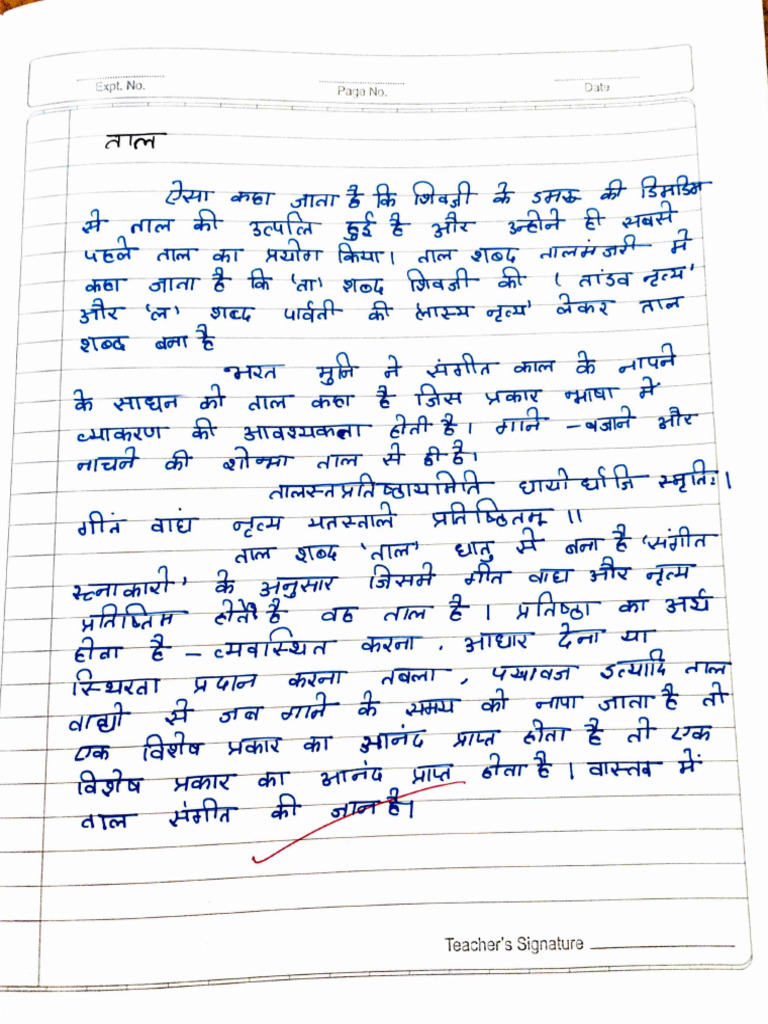 Expt. No.
Page No.
Date
ताल
ऐसा कहा जाता है कि शिवजी के डमरू की डिमडिम
से ताल की उत्पलि हुई है और उन्होने ही सबसे
पहले ताल का प्रयोग किया। ताल शब्द तालमंजरी मे
कहा जाता है कि 'ता' शब्द शिवजी की ( तांडव नृत्य'
और 'ल' शब्द पार्वती की 'लास्य नृत्य' लेकर ताल
शब्द बना है
भरत मुनि ने संगीत काल के नापने
के साधन को ताल कहा है जिस प्रकार भाषा मे
व्याकरण की आवश्यकता होती है। गाने - बजाने और
नाचने की शोभा ताल से ही है।
तालस्तप्रतिष्ठायामिति धायोर्धाजि स्मृतिः।
गीतं वाद्यं नृत्य मतस्ताले प्रतिष्ठितम् ॥
ताल शब्द 'ताल' धातु से बना है 'संगीत
रत्नाकारो' के अनुसार जिसमे गीत वाद्य और नृत्य
प्रतिष्तिम होते है वह ताल है। प्रतिष्ठा का अर्थ
होता है - व्यवस्थित करना, आधार देना या
स्थिरता प्रदान करना तबला, पखावज इत्यादि ताल
वाद्यो से जब गाने के समय को नापा जाता है तो
एक विशेष प्रकार का आनंद प्राप्त होता है तो एक
विशेष प्रकार का आनंद प्राप्त होता है। वास्तव में
ताल संगीत की जान है।
Teacher's Signature